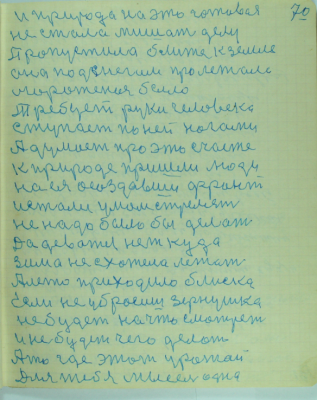 70
и природа на это готовая
не стала мишат делу
Пропустила блите к земле
она под снегам пролежала
огорожоная бело
Требует руки человека
ступает по ней ногами
А думает про это счасте
к природе пришли люди
на ея создавши фронт
и стали умом стрелят
не надо было бы делат
Да деватся нет куда
зима не схотела лежат
А лето приходило блиска
Если не убросиш зернушка
не будет на что смотрет
и не будет чего делат
А то где этот урожай
Для тебя мысея одна